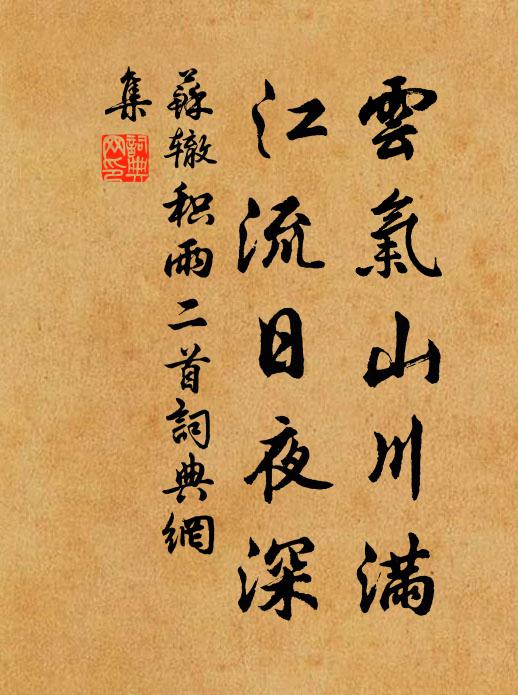 雲氣山川滿
江流日夜深
蘇辙积雨二首詞典網
集
詞典
网印